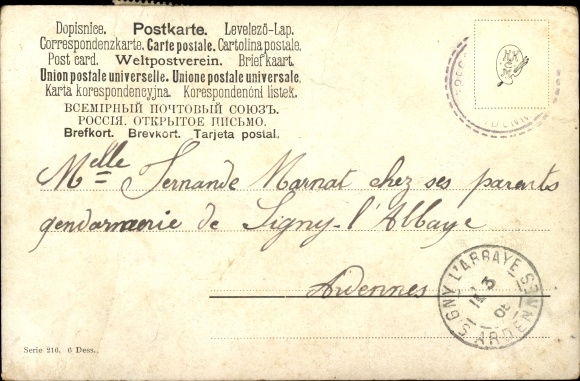 Dopisnice. Postkarte. Levelező-Lap.
Correspondenzkarte. Carte postale. Cartolina postale.
Post card. Weltpostverein. Briefkaart.
Union postale universelle. Unione postale universale.
Karta korespondencyjna. Korespondenćni listek.
ВСЕМІРНЫЙ ПОЧТОВЫЙ СОЮЗЪ.
РОССІЯ. ОТКРЫТОЕ ПИСЬМО.
Brefkort. Brevkort. Tarjeta postal.
Melle Fernande Marnat chez ses parents
gendarmerie de Signy-l'Abbaye
Ardennes
SIGNY L'ABBAYE
ARDENNES
Serie 216. 6 Dess.